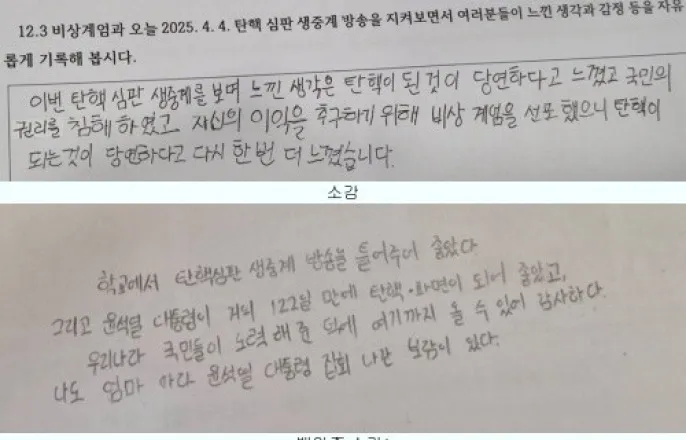 12.3 비상계엄과 오늘 2025. 4. 4. 탄핵 심판 생중계 방송을 지켜보면서 여러분들이 느낀 생각과 감정 등을 자유
롭게 기록해 봅시다.
이번 탄핵 심판 생중계를 보며 느낀 생각은 탄핵이 된 것이 당연하다고 느꼈고 국민의
권리를 침해 하였고, 자신의 이익을 추구하기 위해 비상 계엄을 선포 했으니 탄핵이
되는것이 당연하다고 다시 한번 더 느꼈습니다.
소감
학교에서 탄핵심판 생중계 방송을 틀어주어 좋았다
그리고 윤석열 대통령이 거의 122일 만에 탄핵·파면이 되어 좋았고,
우리나라 국민들이 노력해 준 덕에 여기까지 올 수 있어 감사하다.
나도 엄마 따라 윤석열 대통령 집회 나간 보람이 있다.